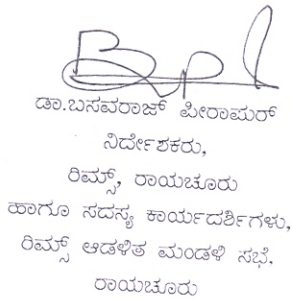 ಡಾ.ಬಸವರಾಜ್ ಪೀರಾಪುರ್
ನಿರ್ದೇಶಕರು,
ರಿಮ್ಸ್, ರಾಯಚೂರು
ಹಾಗೂ ಸದಸ್ಯ ಕಾರ್ಯದರ್ಶಿಗಳು,
ರಿಮ್ಸ್ ಆಡಳಿತ ಮಂಡಳಿ ಸಭೆ.
ರಾಯಚೂರು